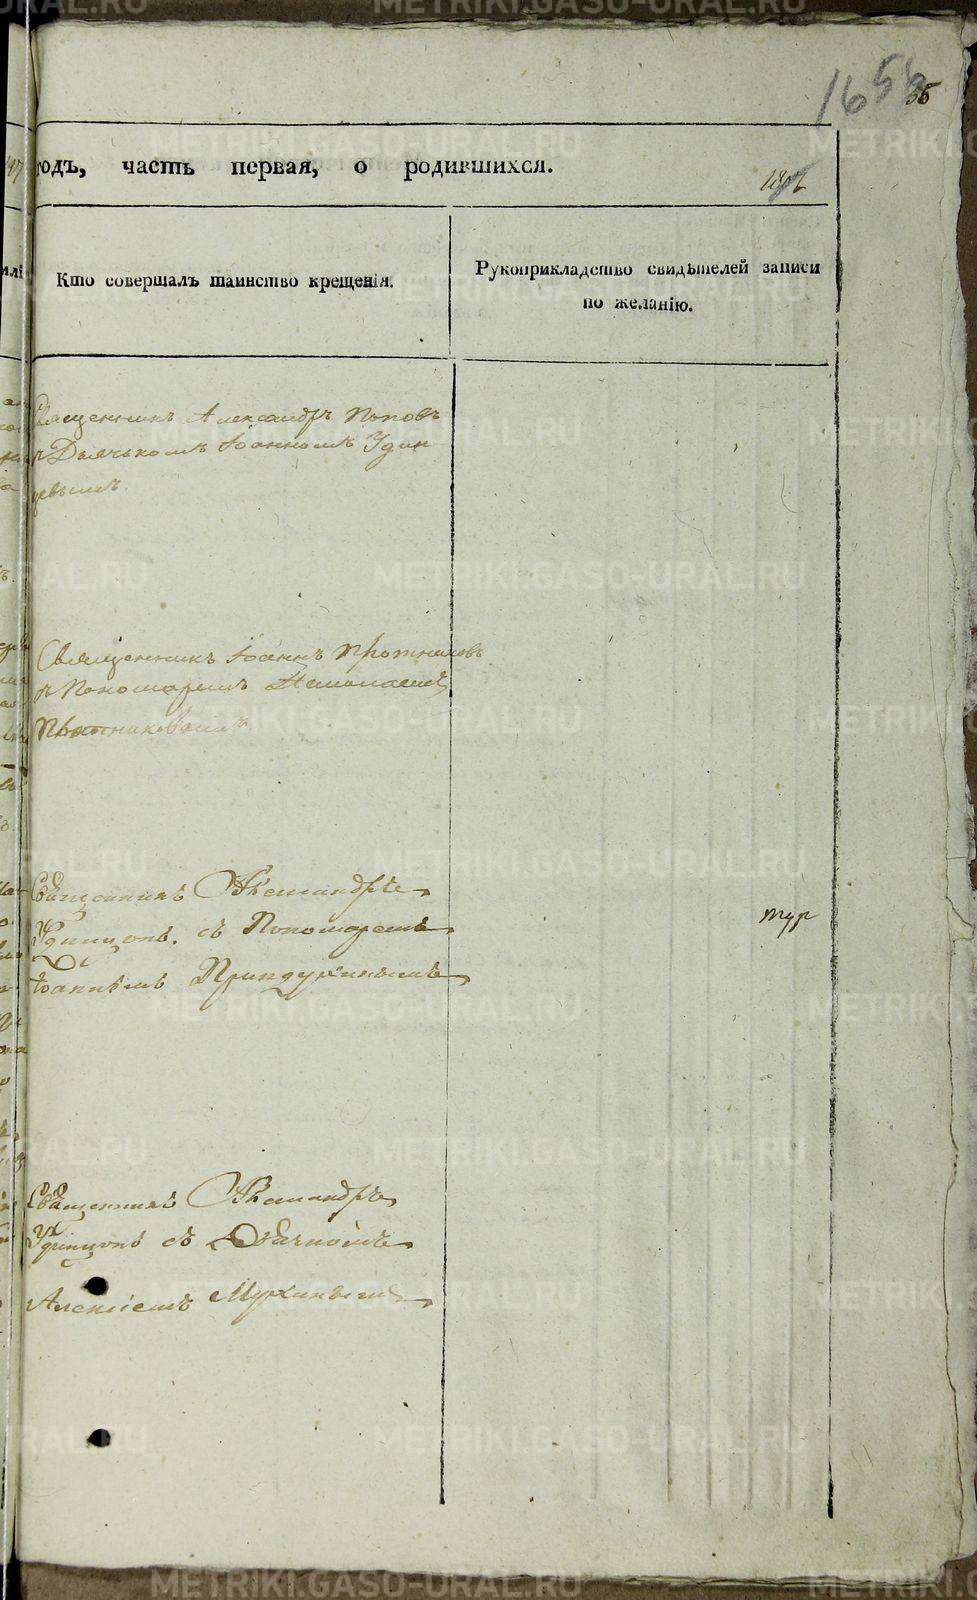 165
36
годъ, часть первая, о родившихся.
Кто совершалъ таинство крещенія.
Рукоприкладство свидѣтелей записи
по желанію.
Священникъ Александръ Поповъ
съ Дьячкомъ Іоанномъ Удин-
цевымъ.
Священникъ Іоаннъ Протниковъ
съ Пономаремъ
Протниковымъ
Священникъ Александръ
Удинцовъ. съ Пономаремъ
Іоанномъ
Священникъ Александръ
Удинцовъ съ Дьячкомъ
Алексіемъ Мухинымъ
METRIKI.GASO-URAL.RU